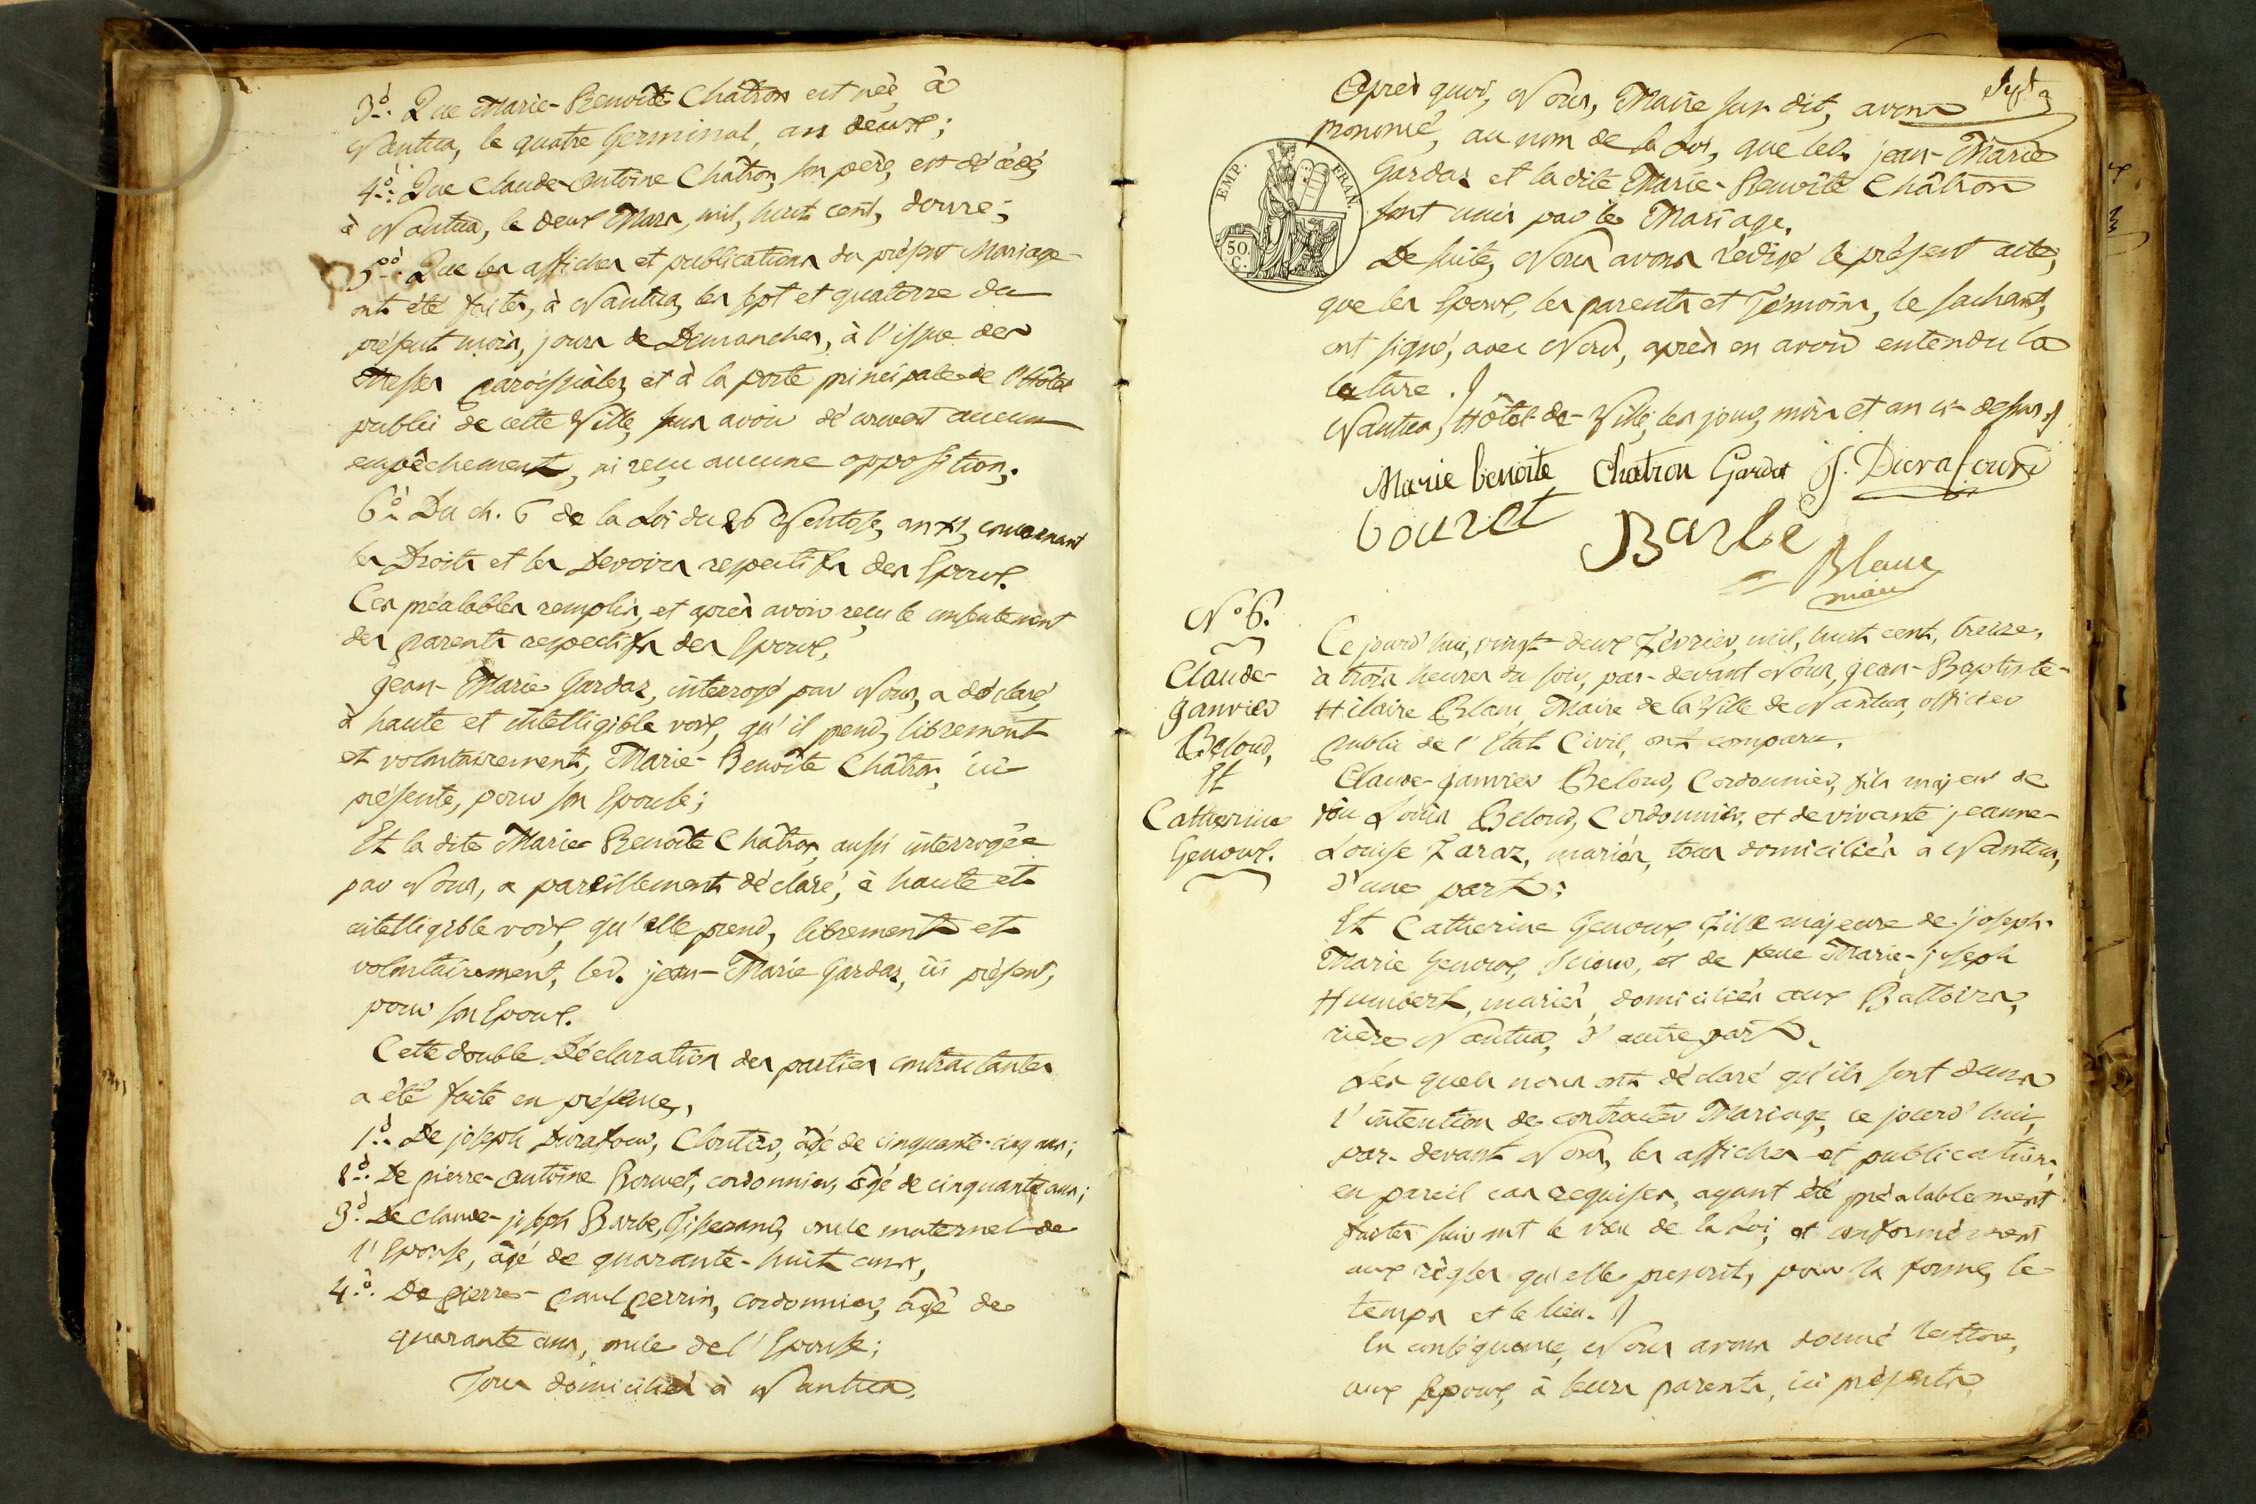 3°. Que Marie-Benoîte Châtron est née, à
Nantua, le quatre Germinal, an deux;
4°. Que Claude-Antoine Châtron, son père, est décédé,
à Nantua, le deux Mars, mil, huit cent, douze;
5°. Que les affiches et publications du présent Mariage
ont été faites, à Nantua, les sept et quatorze du
présent mois, jours de Dimanches, à l'issue des
Messes paroissiales, et à la porte principale de l'Hôtel
public de cette Ville, sans avoir découvert aucun
empêchement, ni reçu aucune opposition;
6°. Du ch. 6 de la Loi du 26 Ventose, an XI, concernant
les Droits et les Devoirs respectifs des Epoux.
Ces préalables remplis, et après avoir reçu le consentement
des parents respectifs des Epoux,
Jean-Marie Gardaz, interrogé par Nous, a déclaré,
à haute et intelligible voix, qu'il prend, librement
et volontairement, Marie-Benoîte Châtron, ici
présente, pour son Epouse;
Et la dite Marie-Benoîte Châtron, aussi interrogée
par Nous, a pareillement déclaré, à haute et
intelligible voix, qu'elle prend, librement et
volontairement, led. jean-Marie Gardaz, ici présent,
pour son Epoux.
Cette double Déclaration des parties contractantes
a été faite en présence,
1°. De joseph Durafour, Cloutier, âgé de cinquante-cinq ans;
2°. De pierre-Antoine Bouvet, cordonnier, âgé de cinquante ans;
3°. De Claude-joseph Barbe, Tisserand, oncle maternel de
l'Epouse, âgé de quarante-huit ans,
4°. De pierre-paul perrin, cordonnier, âgé de
quarante ans, oncle de l'Epouse;
Tous domiciliés à Nantua.
Après quoi, Nous, Maire sus dit, avons
prononcé, au nom de la Loi, que led. jean-Marie
Gardaz et la dite Marie-Benoîte Châtron
sont unis par le Mariage.
EMP. FRAN.
50 C.
De suite, Nous avons rédigé le présent acte,
que les Epoux, les parents et Témoins, le sachant,
ont signé, avec Nous, après en avoir entendu la
lecture.
Nantua, Hôtel-de-Ville, les jour, mois et an ci-dessus.
Marie benoite Chatron Gardat J. Durafour
bouvet Barbe
Blanc
maire
N° 6.
Claude-
Janvier
Beloud,
Et
Catherine
Genoux.
Ce jourd'hui, vingt-deux Février, mil, huit cent, treize,
à trois heures du soir, par-devant Nous, Jean-Baptiste-
Hilaire Blanc, Maire de la Ville de Nantua, officier
public de l'Etat Civil, ont comparu,
Claude-Janvier Beloud, Cordonnier, fils majeur de
feu Louis Beloud, Cordonnier, et de vivante jeanne-
Louise Faraz, mariés, tous domiciliés à Nantua,
d'une part;
Et Catherine Genoux, Fille majeure de joseph-
Marie Genoux, Scieur, et de feue Marie-joseph
Humbert, mariés, domiciliés aux Battoirs,
rière Nantua, d'autre part.
Les quels nous ont déclaré qu'ils sont dans
l'intention de contracter Mariage, ce jourd'hui,
par-devant Nous, les affiches et publications,
en pareil cas requises, ayant été préalablement
faites suivant le vœu de la Loi, et conformément
aux règles qu'elle prescrit, pour la forme, le
temps et le lieu.
En conséquence, Nous avons donné lecture,
aux Epoux, à leurs parents, ici présents,